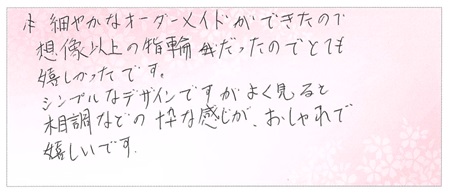 細やかなオーダーメイドができたので
想像以上の指輪だったのでとても
嬉しかったです。
シンプルなデザインですがよく見ると
相調などの粋な感じが、おしゃれで
嬉しいです.